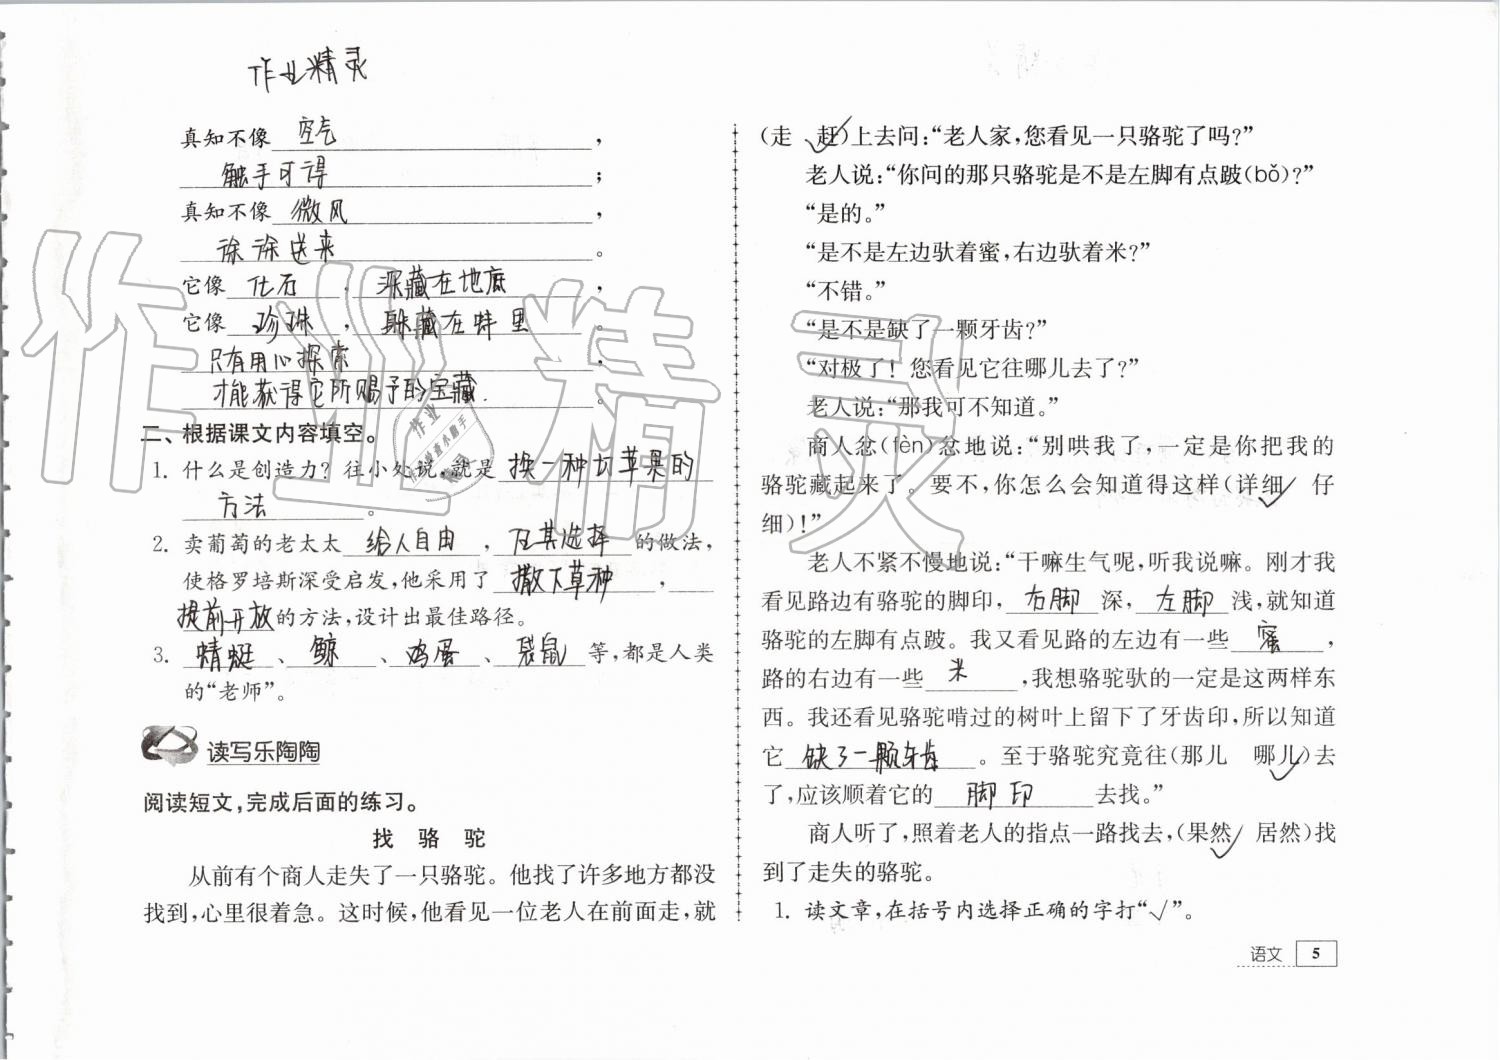 作业精灵
真知不像 空气 ，
触手可得 ；
真知不像 微风 ，
徐徐送来 。
它像 化石 ， 深藏在地底 ，
它像 珍珠 ， 躲藏在蚌里 。
只有用心探索
才能获得它所赐予的宝藏 。
二、根据课文内容填空。
1. 什么是创造力？往小处说，就是 换一种切苹果的
方法 。
2. 卖葡萄的老太太 给人自由 ， 任其选择 的做法，
使格罗培斯深受启发，他采用了 撒下草种 ，
提前开放 的方法，设计出最佳路径。
3. 蜻蜓 、 鲸 、 鸡蛋 、 袋鼠 等，都是人类
的“老师”。
读写乐陶陶
阅读短文，完成后面的练习。
找 骆 驼
从前有个商人走失了一只骆驼。他找了许多地方都没
找到，心里很着急。这时候，他看见一位老人在前面走，就
（走 赶√）上去问：“老人家，您看见一只骆驼了吗？”
老人说：“你问的那只骆驼是不是左脚有点跛（bǒ）？”
“是的。”
“是不是左边驮着蜜，右边驮着米？”
“不错。”
“是不是缺了一颗牙齿？”
“对极了！您看见它往哪儿去了？”
老人说：“那我可不知道。”
商人忿（fèn）忿地说：“别哄我了，一定是你把我的
骆驼藏起来了。要不，你怎么会知道得这样（详细√ 仔
细）！”
老人不紧不慢地说：“干嘛生气呢，听我说嘛。刚才我
看见路边有骆驼的脚印， 右脚 深， 左脚 浅，就知道
骆驼的左脚有点跛。我又看见路的左边有一些 蜜 ，
路的右边有一些 米 ，我想骆驼驮的一定是这两样东
西。我还看见骆驼啃过的树叶上留下了牙齿印，所以知道
它 缺了一颗牙齿 。至于骆驼究竟往（那儿 哪儿√）去
了，应该顺着它的 脚印 去找。”
商人听了，照着老人的指点一路找去，（果然√ 居然）找
到了走失的骆驼。
1. 读文章，在括号内选择正确的字打“√”。
语文 5
作业精灵